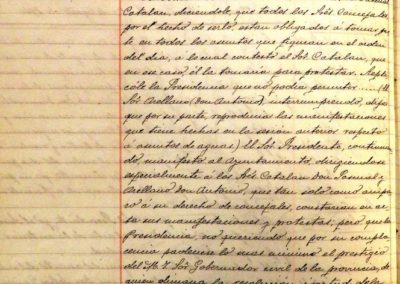 Catalan, diciendole, que todos los Sres Concejales,
por el hecho de serlo, estan obligados á tomar par
te en todos los asuntos que figuran en el orden
del dia, á lo cual contestó el Sor Catalan, que
en ese caso, él la tomaria para protestar. Repli
cóle la Presidencia que no podia permitir .... (El
Sor Arellano (Don Antonio), interrumpiendo, dijo
que por su parte, reproducia las manifestaciones
que tiene hechas en la sesión anterior respecto
á asuntos de aguas.) El Sor Presidente, continuan
do, manifestó al Ayuntamiento, dirigiendose
especialmente á los Sres Catalan Don Pascual y
Arellano Don Antonio, que tan solo como ampa
ro á su derecho de concejales, constarian en ac
ta sus manifestaciones y protestas; pero que la
Presidencia, no queriendo que por su compla
cencia padezca lo mas minimo el prestigio
del M. Y. Sor Gobernador civil de la provincia, de
quien dimana la resolución